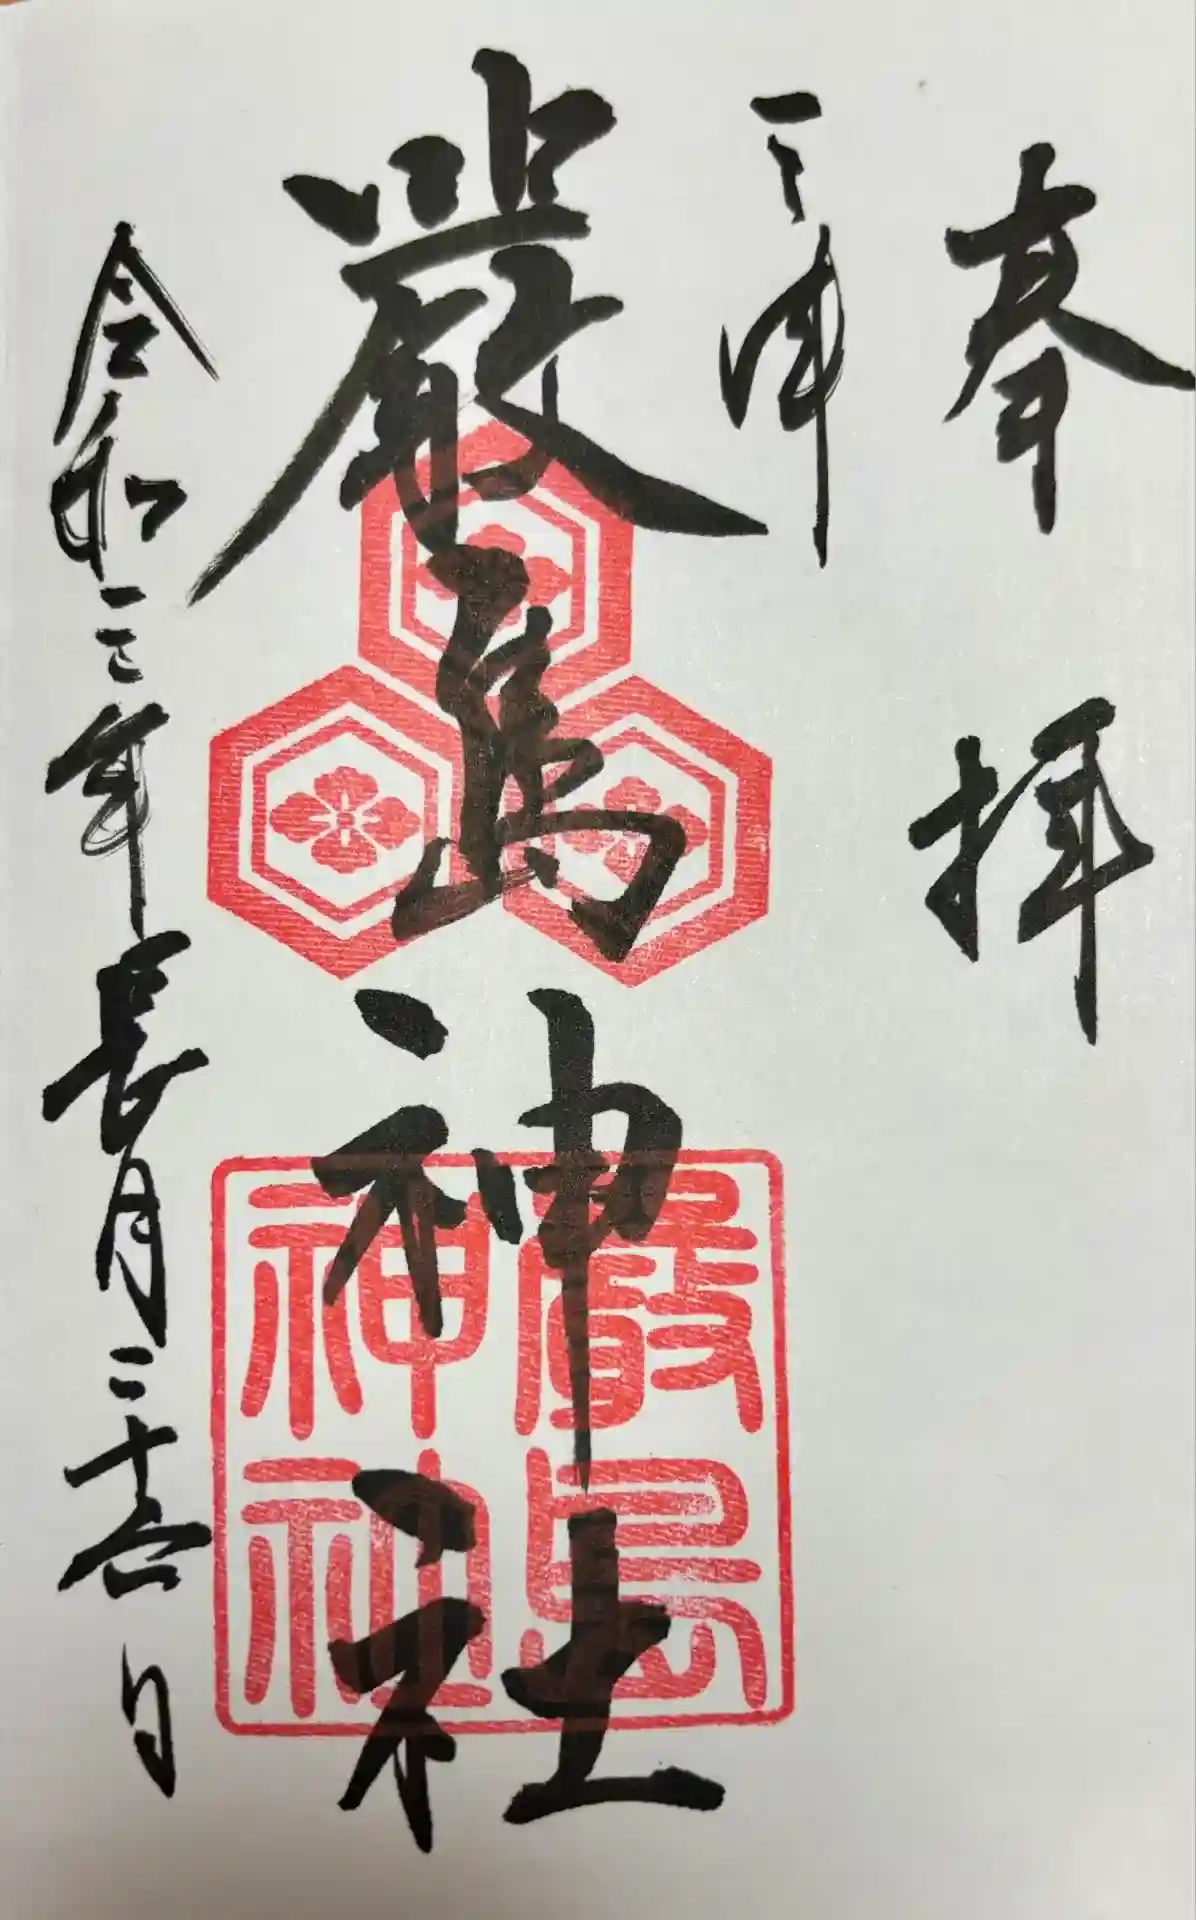 奉拝
三津
嚴島神社
令和三年長月二十日
嚴島
神社